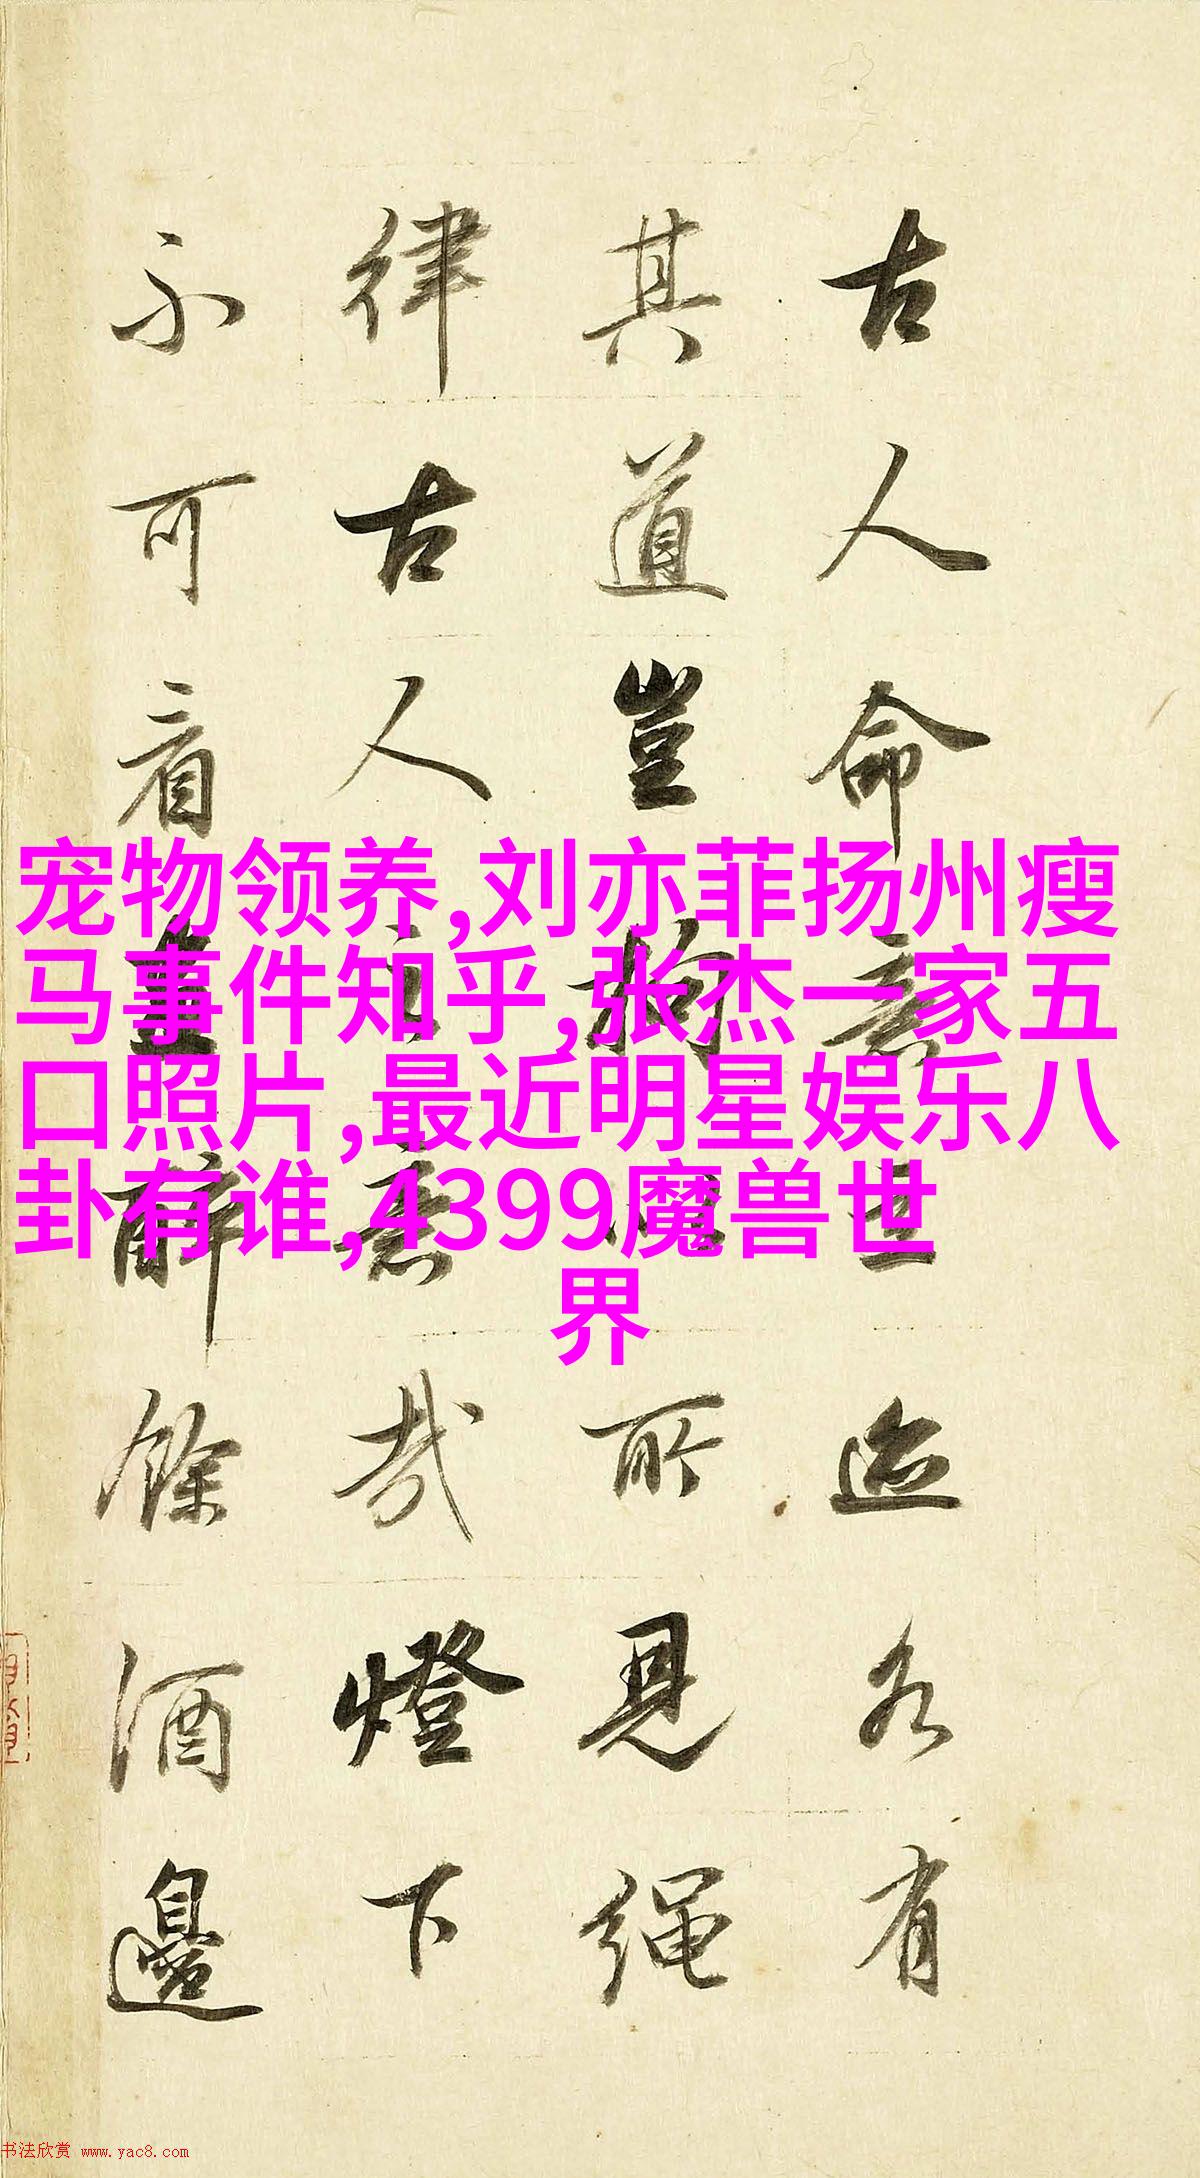 宠物领养,刘亦菲扬州瘦
马事件知乎,张杰一家五
口照片,最近明星娱乐八
卦有谁,4399魔兽世
界
古人命意迹各有
其道豈拘所見繩
律古人意哉燈下
不可看畫醉餘酒邊
书法欣赏 www.yac8.com